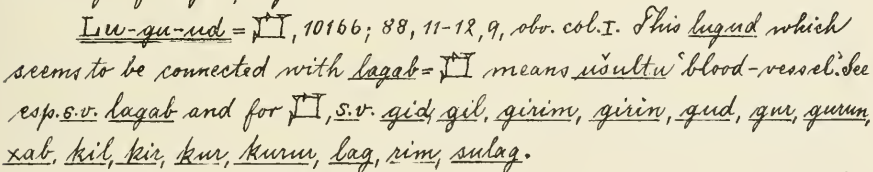 Lu-gu-ud = 𒆸, 10166; 88, 11-12, 9, obv. col. I. This lugud which
seems to be connected with lagab = 𒆸 means ušultu 'blood-vessel'. See
esp. s.v. lagab and for 𒆸, s.v. gid, gil, girim, girin, gud, gur, gurun,
xab, kil, kir, kur, kurur, lag, rim, sulag.